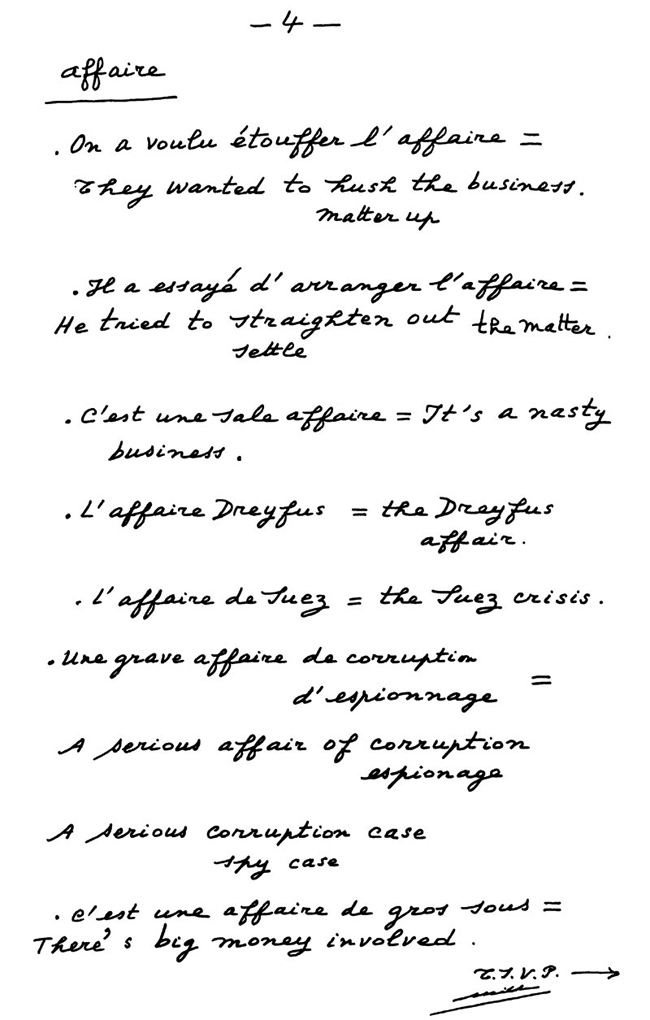 — 4 —
affaire
. On a voulu étouffer l'affaire =
They wanted to hush the business.
matter up
. Il a essayé d'arranger l'affaire =
He tried to straighten out the matter.
settle
. C'est une sale affaire = It's a nasty
business.
. L'affaire Dreyfus = the Dreyfus
affair.
. L'affaire de Suez = the Suez crisis.
. Une grave affaire de corruption
d'espionnage =
A serious affair of corruption
espionage
A serious corruption case
spy case
. C'est une affaire de gros sous =
There's big money involved.
T.S.V.P. →